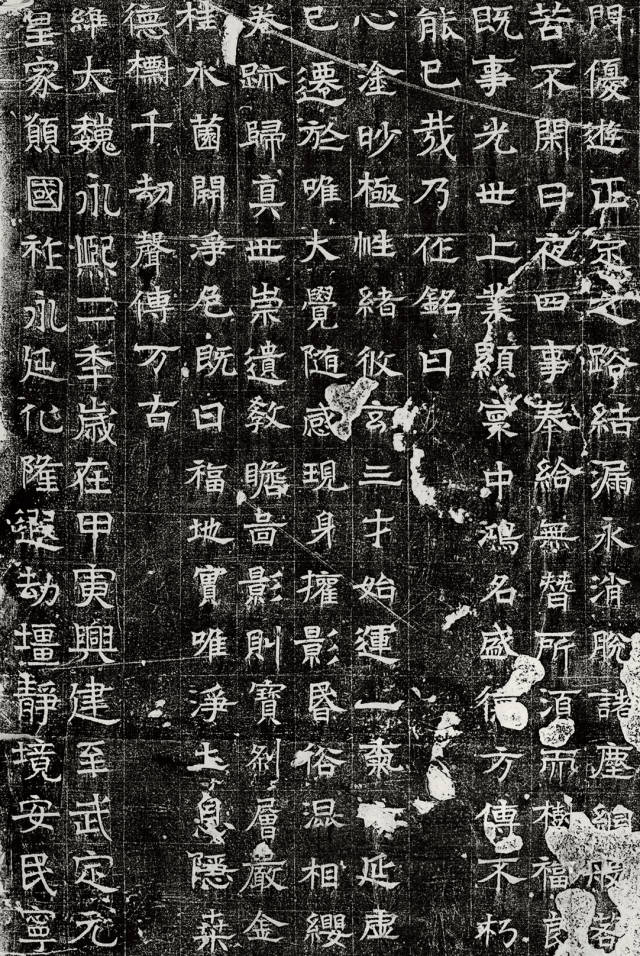 門優遊正定之路結漏永消脫諸塵網般若
苦不閑日夜四事奉給無替所須而樹福良
既事光世上業顯寰中鴻名盛德方傳不朽
能已哉乃作銘曰
心塗眇極性緒攸玄三才始運一氣延虛
已遷於唯大覺随感現身攉影昏俗混相纓
眷跡歸真世崇遺教瞻啚影則寶刹層嚴金
桂水菌開淨色既曰福地實唯淨土息隱
德檦千劫聲傳万古
維大魏永熙二年歲在甲寅興建至武定元
皇家顛國祚永延化隆遐劫壃靜境安民寧